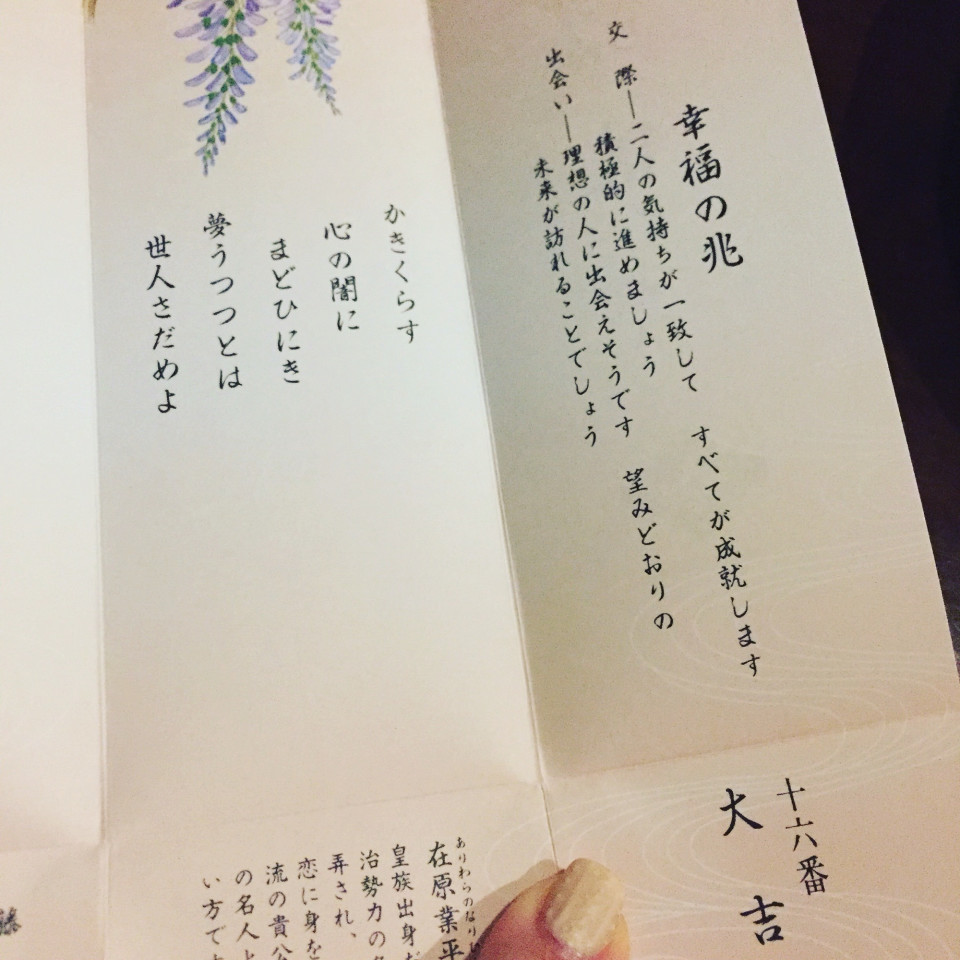 幸福の兆
交　際―二人の気持ちが一致して　すべてが成就します
積極的に進めましょう
出会い―理想の人に出会えそうです　望みどおりの
未来が訪れることでしょう
十六番
大吉
かきくらす
心の闇に
まどひにき
夢うつつとは
世人さだめよ
ありわらのなり
在原業平
皇族出身
治勢力の
弄され、
恋に身を
流の貴公
の名人
い方で
藤